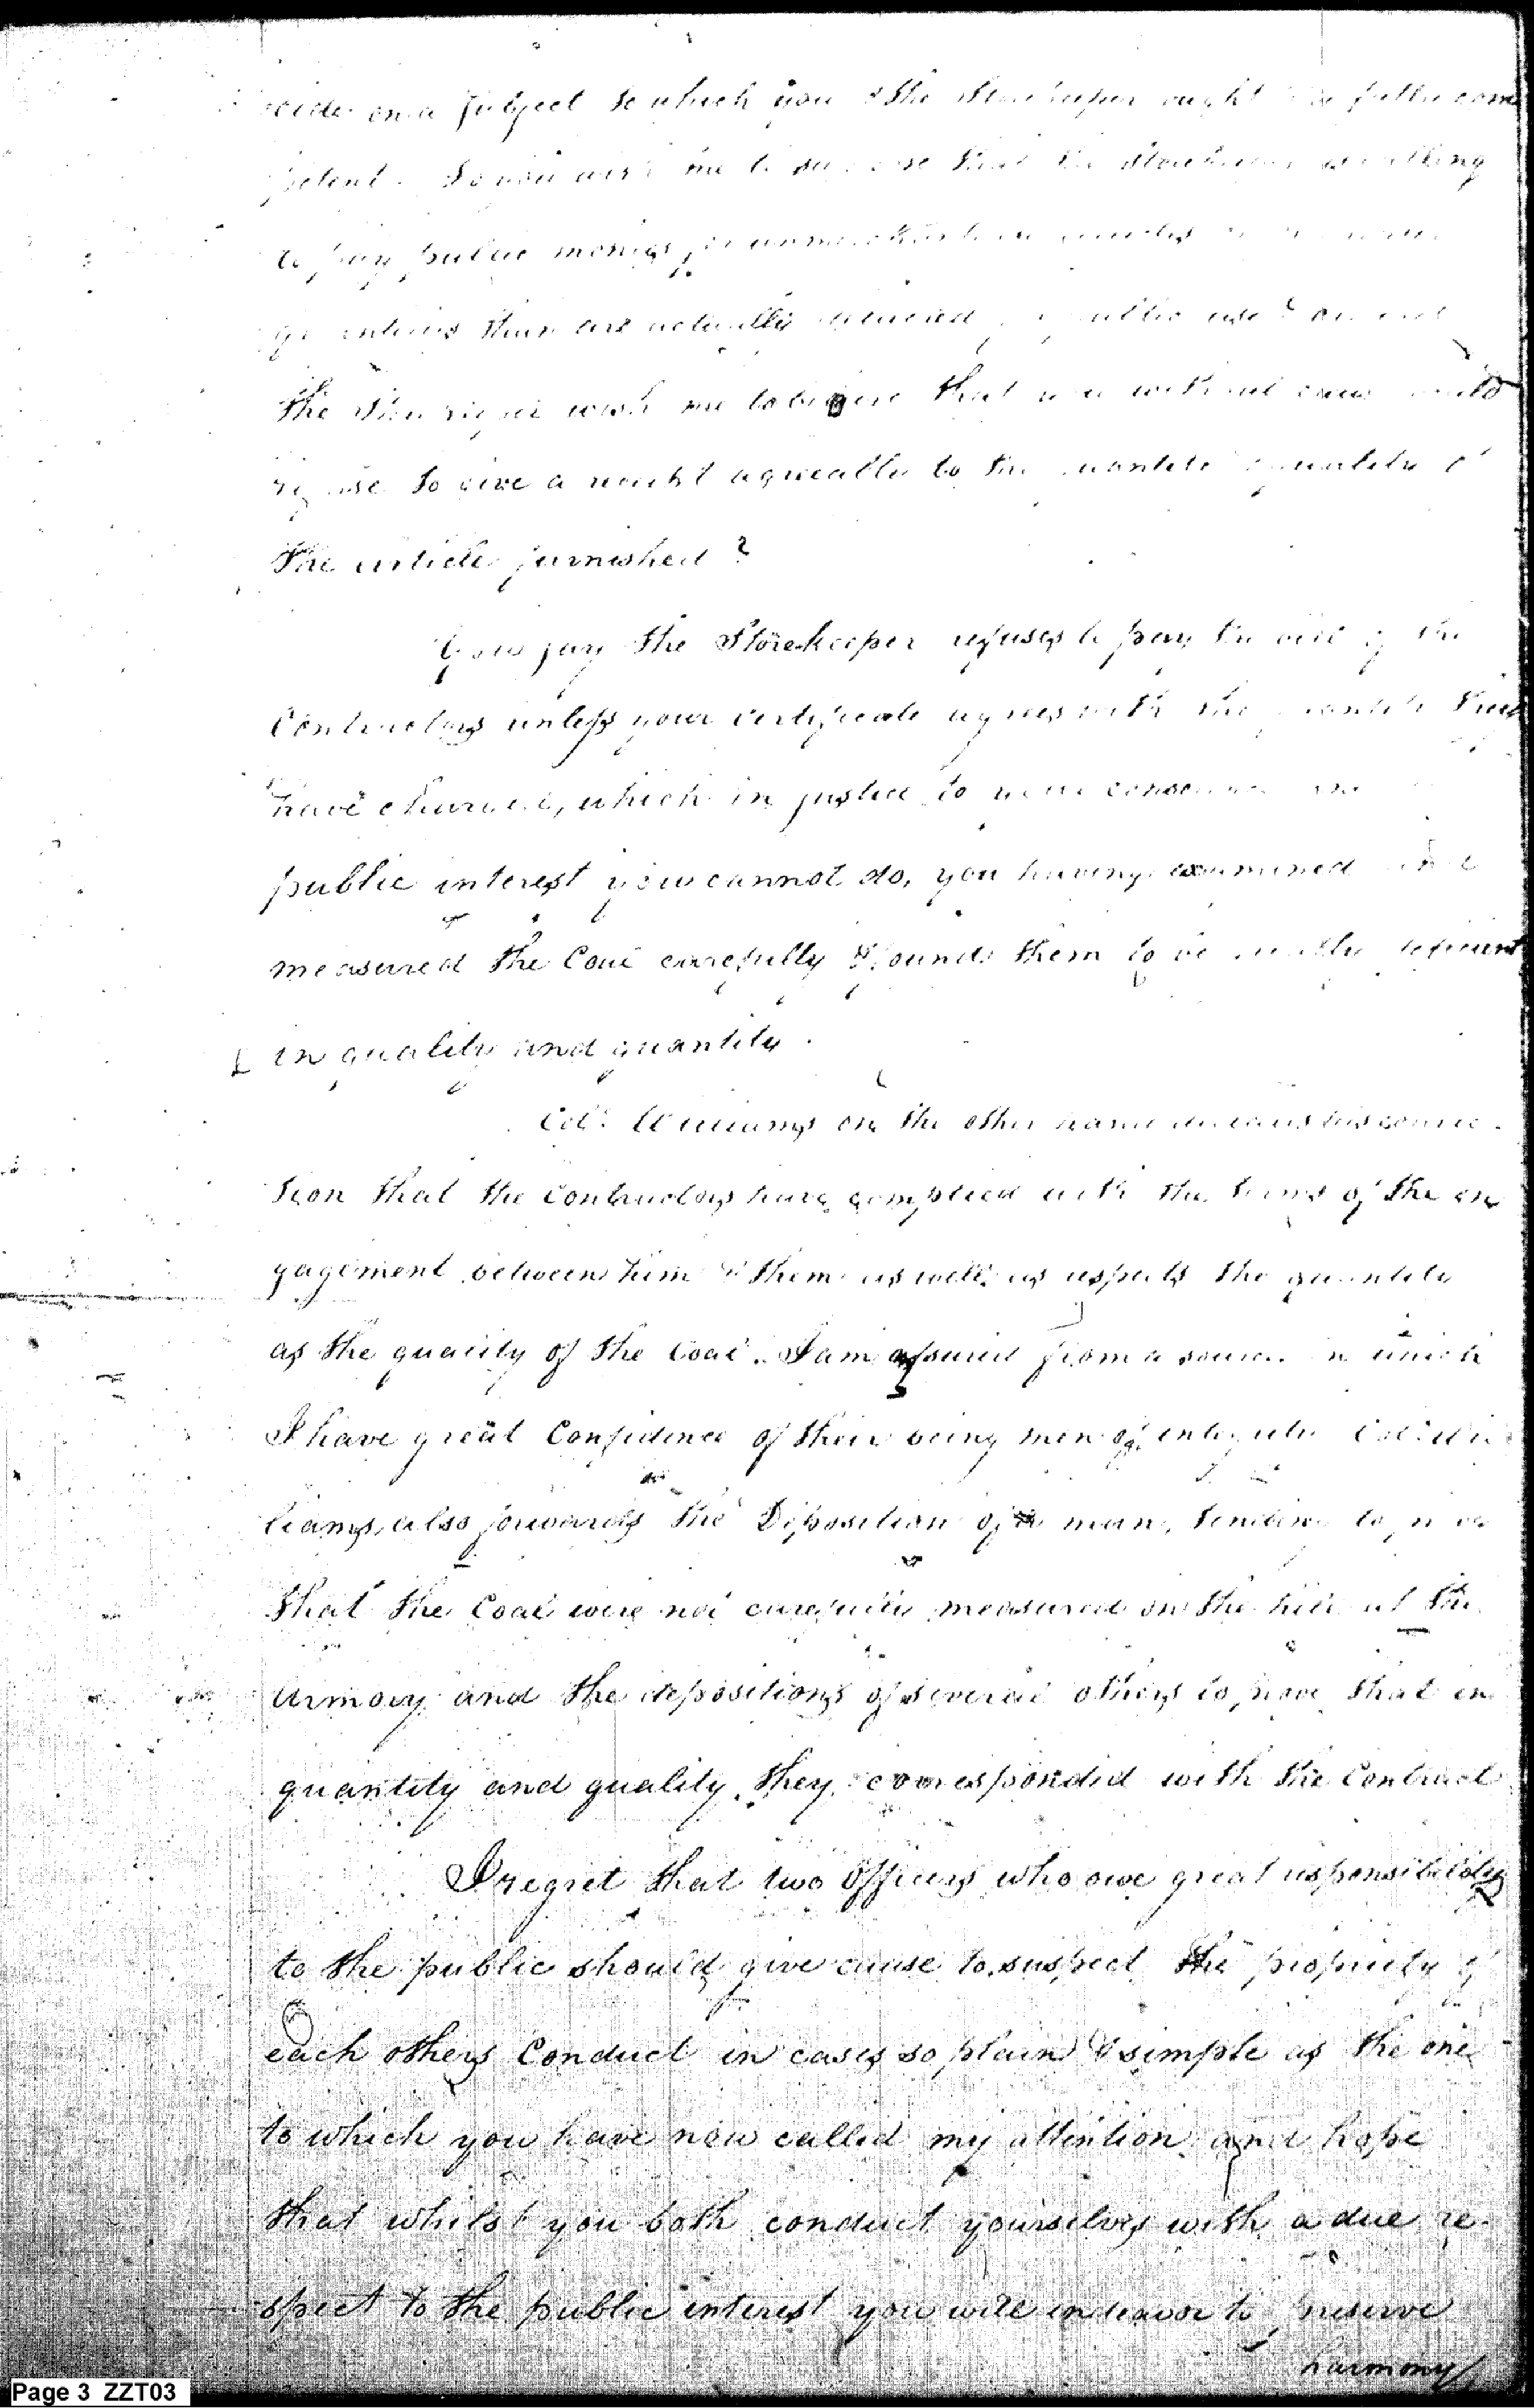 on a subject to which you & the Storekeeper ought fully com
petent. Do you wish me to suppose that the Storekeeper is willing
to pay public monies for
than are actually public use? or
the wish me to believe that you without cause would
refuse to give a receipt agreeably to the quantity & quality of
the article furnished?
You say the Storekeeper refuses to pay the bill of the
Contractors unless your certificate agrees with the quantity they
have charged, which in justice to your conscience
public interest you cannot do, you having examined and
measured the Coal carefully & found them to be deficient
in quality and quantity.
Col. Williams on the other hand
tion that the Contractors have complied with the terms of the en
gagement between him & them as well as respects the quantity
as the quality of the Coal. I am assured from a source in which
I have great Confidence of their being men of integrity Col. Wil
liams also forwards the Deposition of a man, tending to prove
that the Coal were not carefully measured on the hill at the
Armory and the depositions of several others to prove that in
quantity and quality they corresponded with the Contract
I regret that two Officers who owe great responsibility
to the public should give cause to suspect the propriety of
each others Conduct in cases so plain & simple as the one
to which you have now called my attention and hope
that whilst you both conduct yourselves with a due re
spect to the public interest you will endeavor to preserve
harmony
Page 3 ZZT03